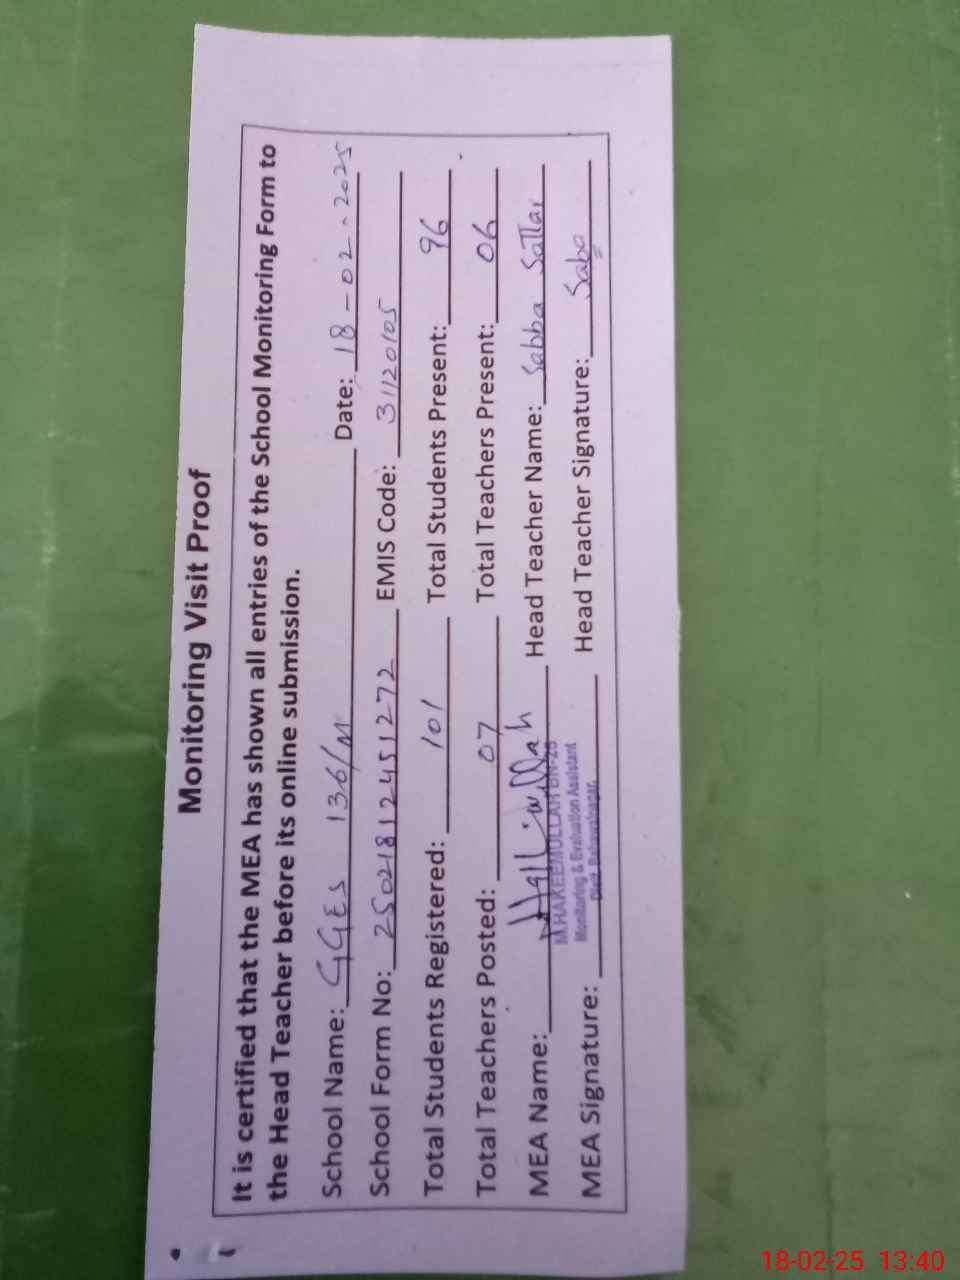 Monitoring Visit Proof
It is certified that the MEA has shown all entries of the School Monitoring Form to
the Head Teacher before its online submission.
School Name: GGES 136/M Date: 18-02-2025
School Form No: 25021812451272 EMIS Code: 31120105
Total Students Registered: 101 Total Students Present: 96
Total Teachers Posted: 07 Total Teachers Present: 06
MEA Name: Head Teacher Name: Sabba Sattar
M.HAKEEMULLAH BN-28
Monitoring & Evaluation Assistant
Distt. Bahawalnagar.
MEA Signature: Head Teacher Signature: Saba
18-02-25 13:40